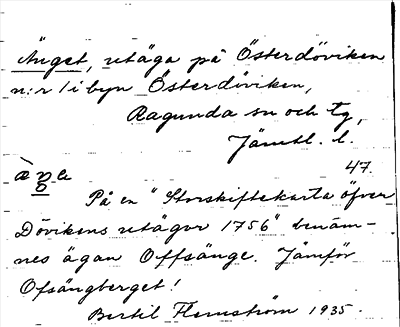 Änget, utäga på Österdöviken
n:r 1 i byn Österdöviken,
Ragunda sn och tg,
Jämtl. l.
47.
På en "Storskifteskarta öfver
Dövikens utägor 1756" benäm-
nes ägan Offsänge. Jämför
Ofsängberget!
Bertil Flemström 1935.